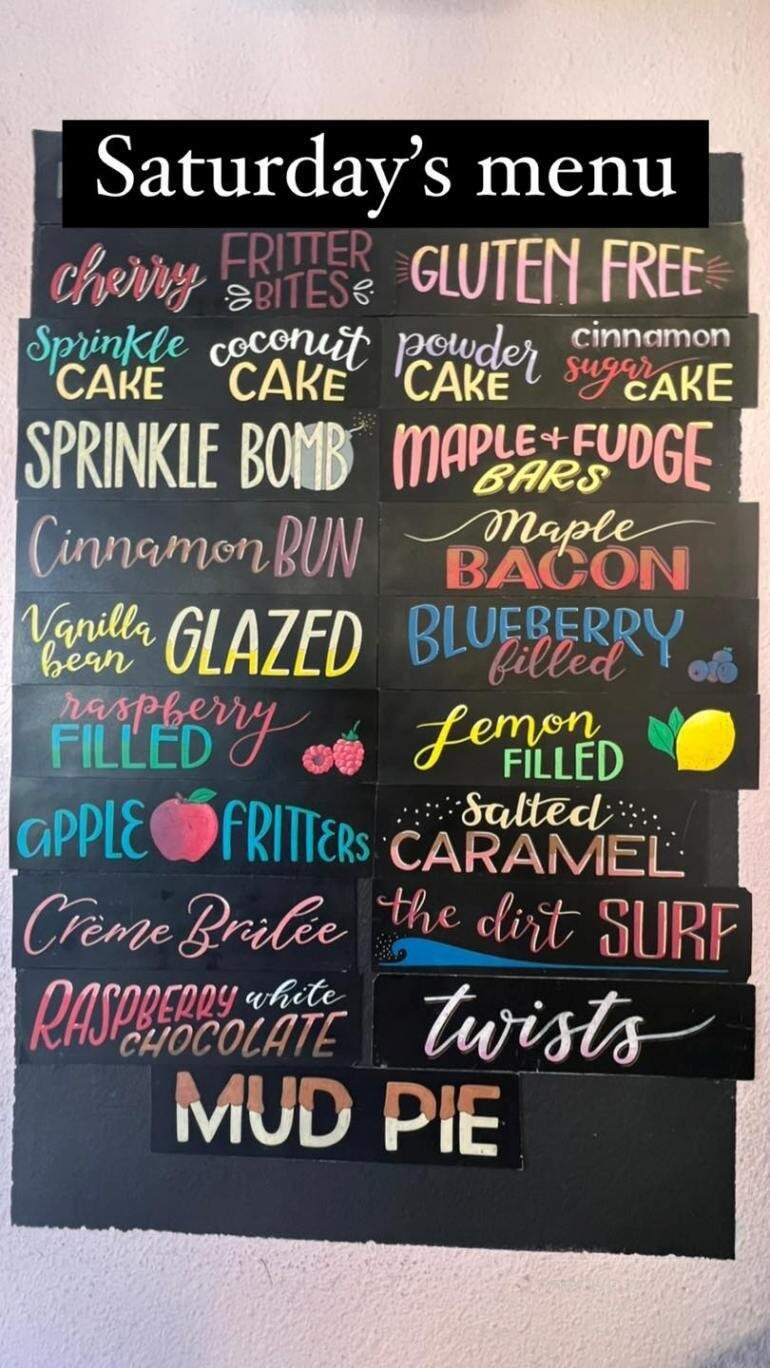 Saturday's menu
cherry FRITTER BITES
GLUTEN FREE
Sprinkle CAKE
coconut CAKE
powder CAKE
cinnamon sugar CAKE
SPRINKLE BOMB
MAPLE + FUDGE BARS
Cinnamon BUN
Maple BACON
Vanilla bean GLAZED
BLUEBERRY filled
raspberry FILLED
Lemon FILLED
APPLE FRITTERS
Salted CARAMEL
Crème Brûlée
the dirt SURF
RASPBERRY white CHOCOLATE
twists
MUD PIE